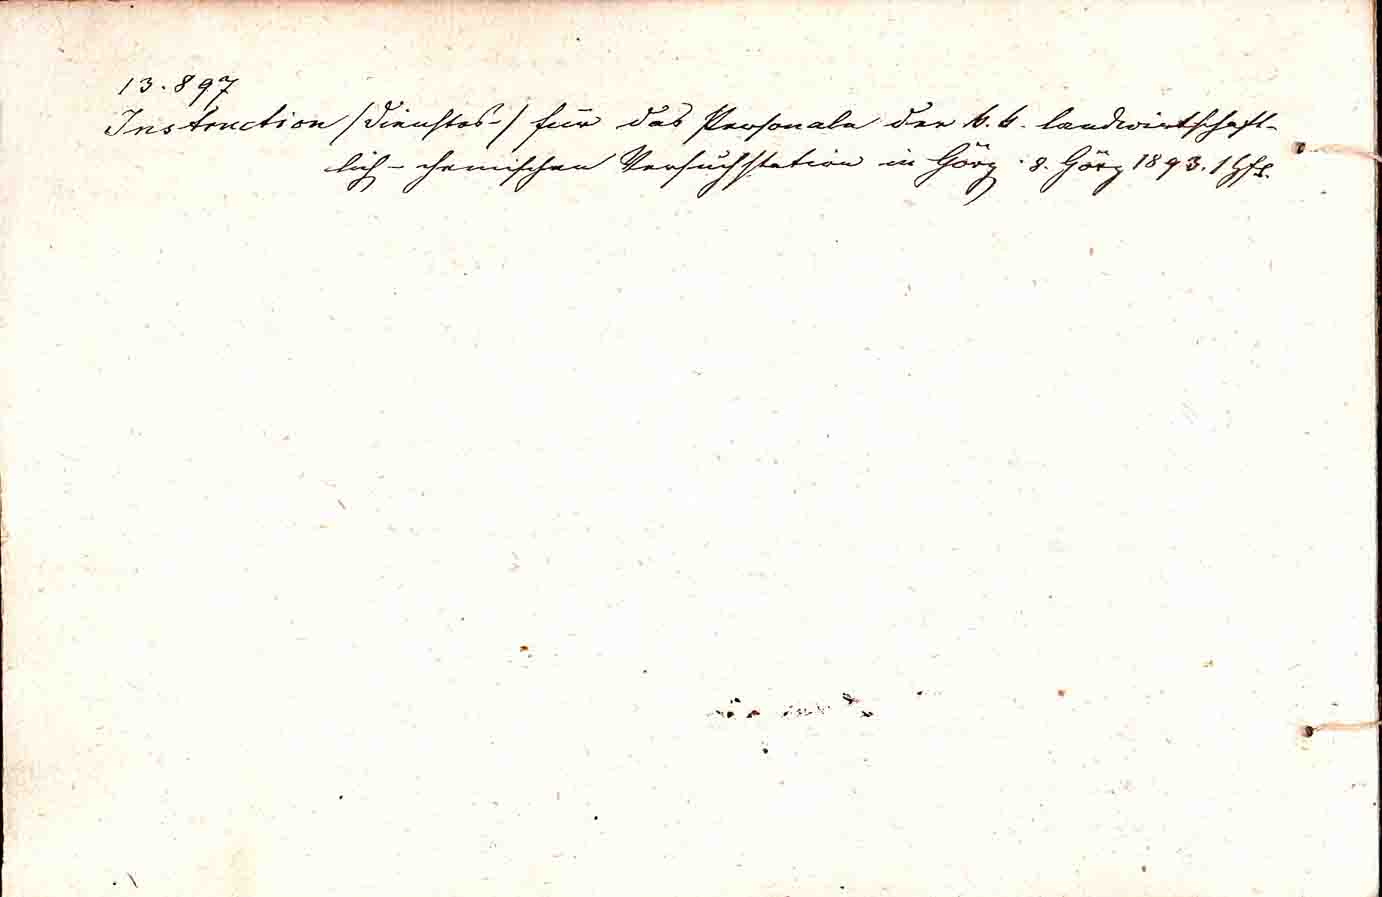 13.897
Instruction /Dienstes-/ für das Personale der k.k. landwirtschaft-
lich-chemischen Versuchsstation in Görz. 8. Görz 1893. 1 Hft.